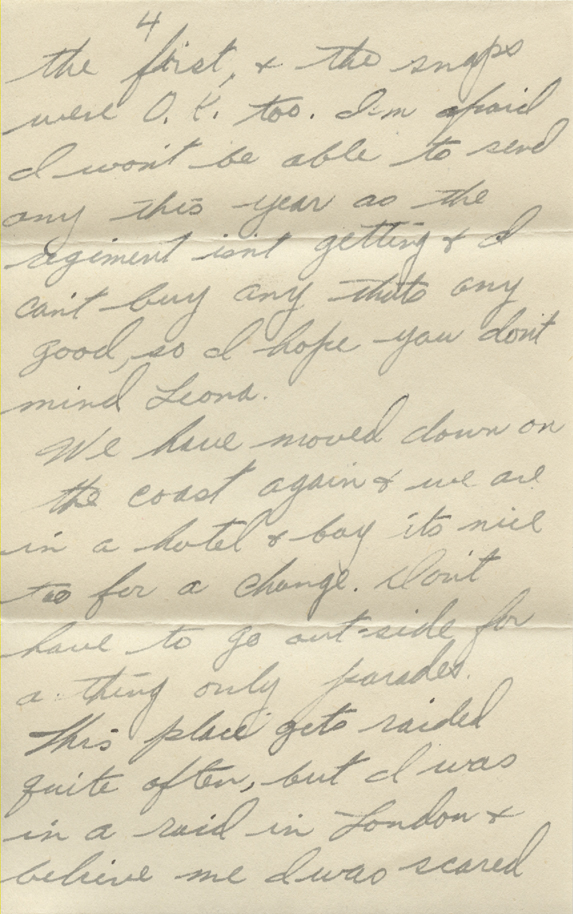 4
the first, & the snaps
were O.K. too. I'm afraid
I won't be able to send
any this year as the
regiment isn't getting & I
can't buy any thats any
good, so I hope you don't
mind Leona.
We have moved down on
the coast again & we are
in a hotel & boy its nice
too for a change. Don't
have to go out-side for
a thing only parades.
This place gets raided
quite often, but I was
in a raid in London &
believe me I was scared